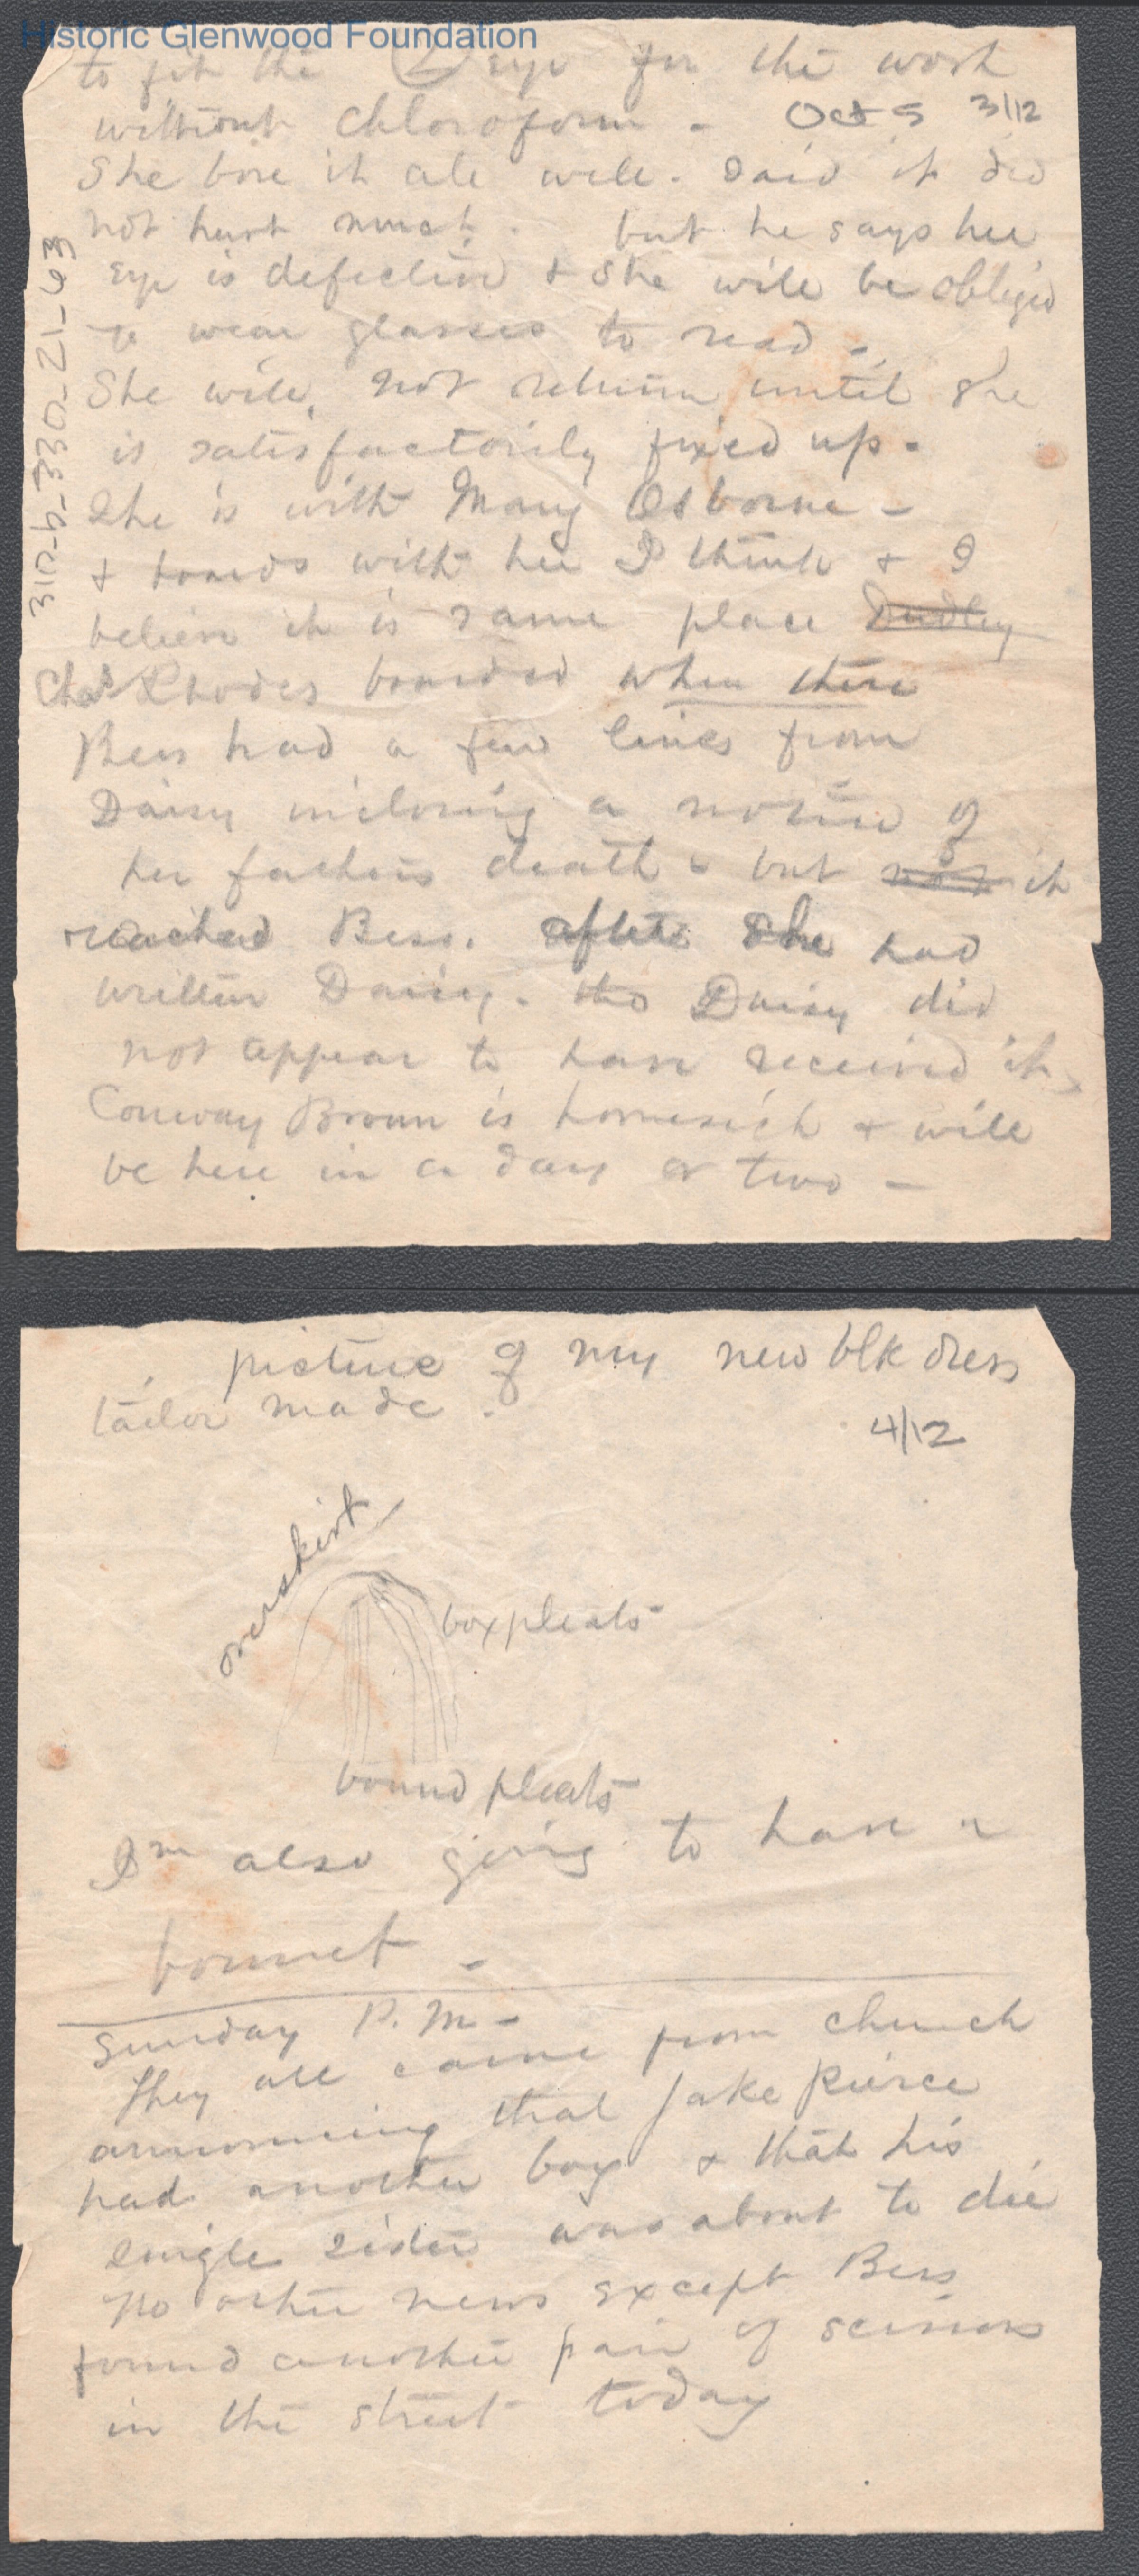 Historic Glenwood Foundation
to fit the (2) eye for the work
without chloroform - Oct 5 3/12
She bore it all well. Said it did
not hurt much. but he says her
eye is defective & she will be obliged
to wear glasses to read -
She will not return until she
is satisfactorily fixed up -
She is with Mary Osborne -
& boards with her I think & I
believe it is same place Dudley
Chas Rhodes boarded when there
Bess had a few lines from
Daisy inclosing a notice of
her father's death - but not it
reached Bess. after she had
written Daisy. tho Daisy did
not appear to have received it,
Conway Brown is homesick & will
be here in a day or two -
310-b-330-21-63
picture of my new blk dress
tailor made.
4/12
overskirt
box pleats
bound pleats
I'm also going to have a
bonnet -
Sunday P.M -
They all came from church
announcing that Jake Pierce
had another boy & that his
single sister was about to die
No other news except Bess
found another pair of scissors
in the street today